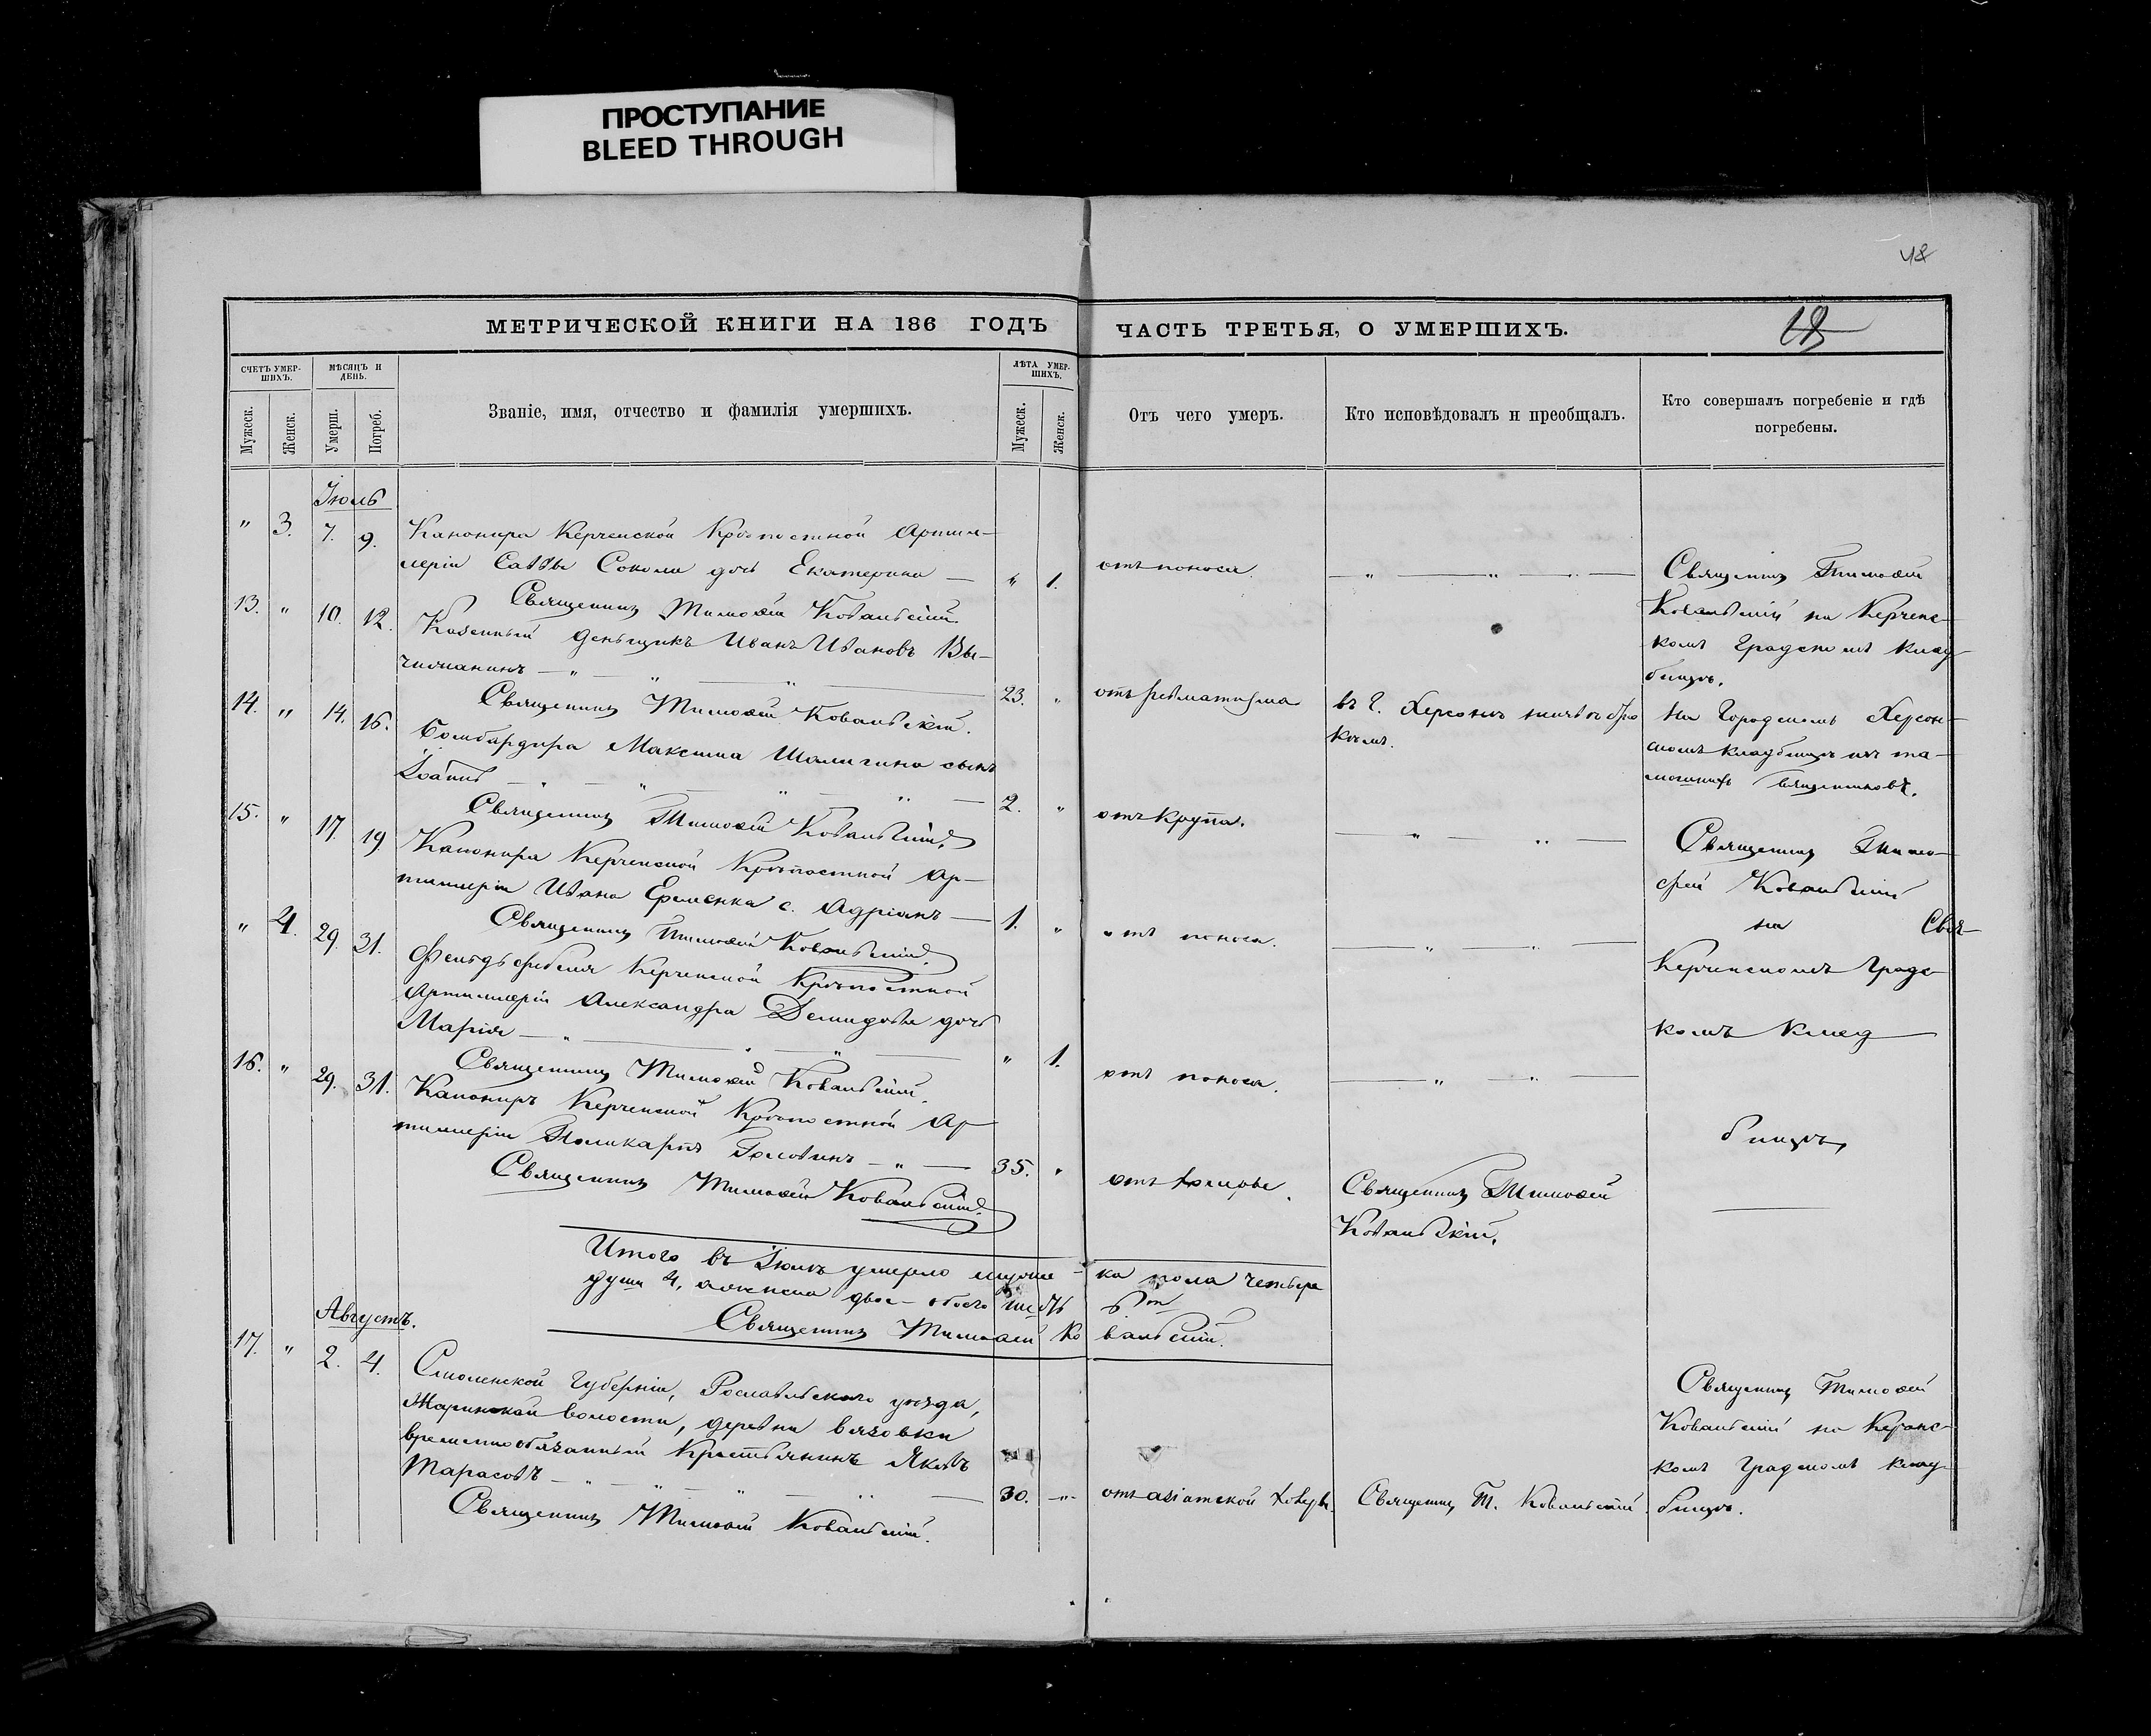 ПРОСТУПАНИЕ
BLEED THROUGH
48
18
МЕТРИЧЕСКОЙ КНИГИ НА 186 ГОДЪ
ЧАСТЬ ТРЕТЬЯ, О УМЕРШИХЪ.
СЧЕТЪ УМЕР-
ШИХЪ.
МѢСЯЦЪ И
ДЕНЬ.
ЛѢТА УМЕР-
ШИХЪ.
Мужеск.
Женск.
Умерш.
Погреб.
Званіе, имя, отчество и фамилія умершихъ.
Мужеск.
Женск.
Отъ чего умеръ.
Кто исповѣдовалъ и преобщалъ.
Кто совершалъ погребеніе и гдѣ
погребены.
Іюль
" 3. 7. 9. Канонира Керченской Крѣпостной Артил-
леріи Саввы Сокола дочь Екатерина — " 1. отъ поноса. — " — " — " — Священникъ Тимоѳей
Священникъ Тимоѳей Ковальскій.
Ковальскій на Керченс-
комъ Градскомъ клад-
бищѣ.
13. " 10. 12. Казенный деньщикъ Иванъ Ивановъ Вы-
— " — " — " — 23. " отъ ревматизма въ г. Херсонѣ
Священникъ Тимоѳей Ковальскій.
На Городскомъ Херсон-
скомъ кладбищѣ
14. " 14. 16. Бомбардира Максима Шалыгина сынъ
Іоаннъ — " — " — " — " — 2. " отъ крупа. — " — " —
Священникъ Тимоѳей Ковальскій.
Священникъ Тимо-
фей Ковальскій
на Свя-
Керченскомъ Градс-
комъ клад
бищѣ,
15. " 17. 19. Канонира Керченской Крѣпостной Ар-
тиллеріи Ивана Ерменка с. Адріанъ — 1. " отъ поноса. — " — " —
Священникъ Тимоѳей Ковальскій.
" 4. 29. 31. Фельдфебеля Керченской Крѣпостной
Артиллеріи Александра Демидова дочь
Марія — " — " — " — " 1. отъ поноса. — " — " —
Священникъ Тимоѳей Ковальскій.
16. " 29. 31. Канониръ Керченской Крѣпостной Ар
тиллеріи Поликарпъ Головинъ — " — 35. " отъ холеры. Священникъ Тимоѳей
Ковальскій.
Священникъ Тимоѳей Ковальскій.
Итого въ Іюлѣ умерло мужес- ка пола четыре
души 4, а женска двѣ - обоего шесть
Священникъ Тимоѳей Ко вальскій.
Августъ.
17. " 2. 4. Смоленской Губерніи, Рославльскаго уѣзда,
волости, деревни Вязовки
временнообязанный Крестьянинъ Яковъ
Тарасовъ — " — " — " — " — 30. — " — отъ азіатской холеры. Священникъ Т. Ковальскій.
Священникъ Тимоѳей Ковальскій.
Священникъ Тимоѳей
Ковальскій на Керченс-
комъ Градскомъ клад-
бищѣ.